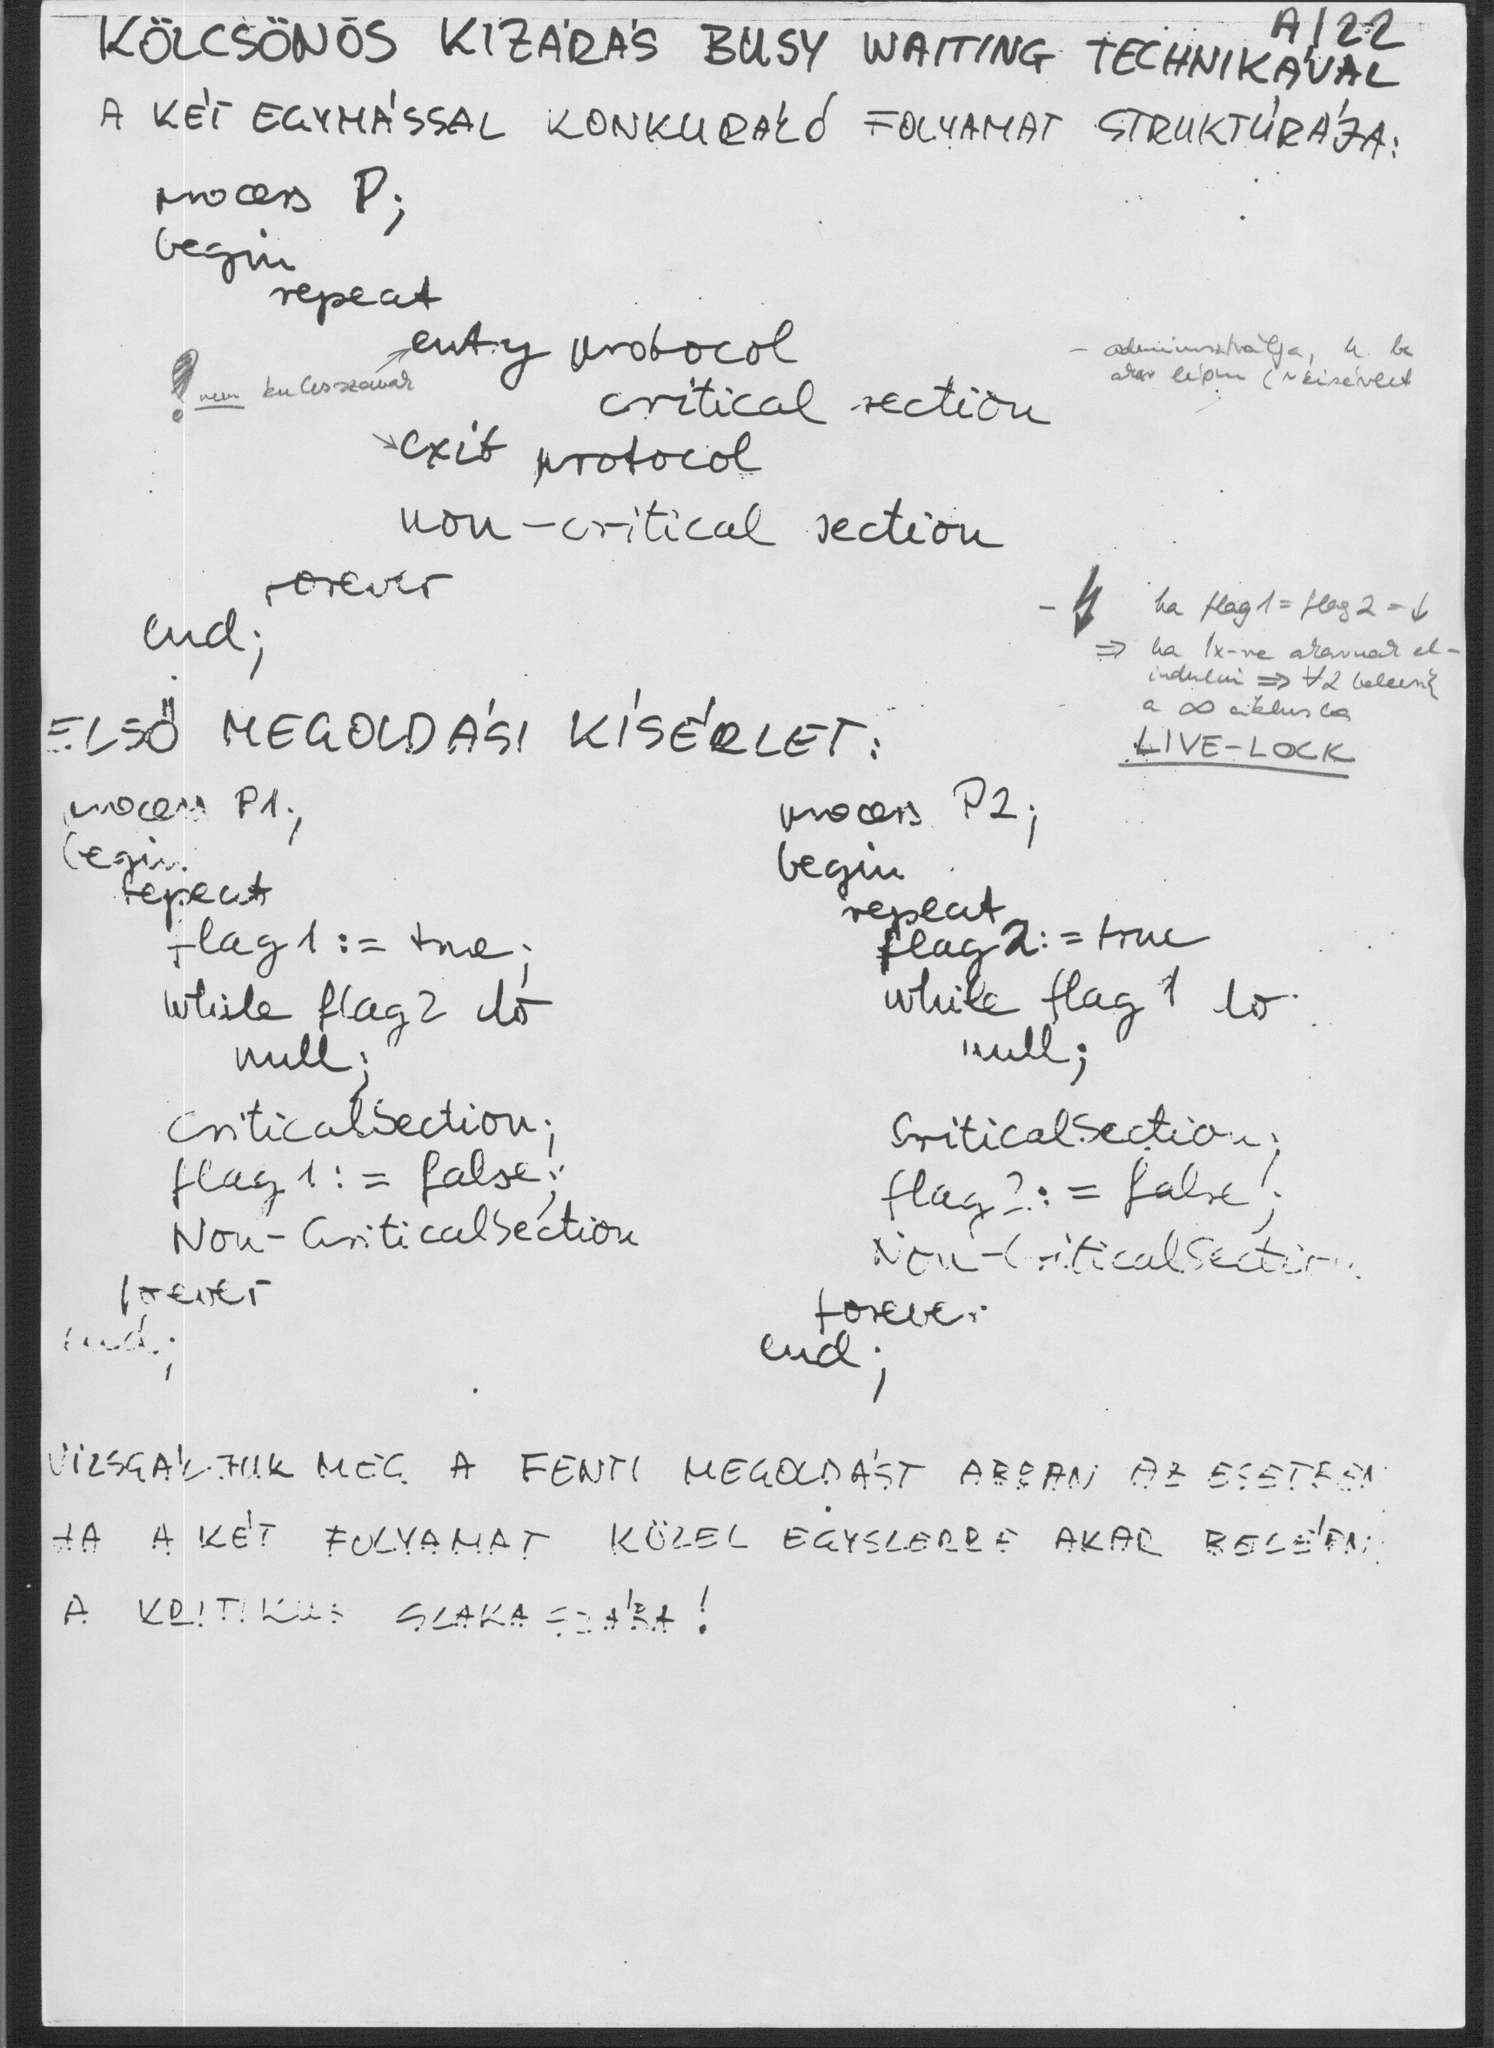 A/22
KÖLCSÖNÖS KIZÁRÁS BUSY WAITING TECHNIKÁVAL
A KÉT EGYMÁSSAL KONKURÁLÓ FOLYAMAT STRUKTÚRÁJA:
process P;
begin
repeat
entry protocol
! nem kulcsszavak
- adminisztrálja, h. be
akar lépni (
critical section
exit protocol
non-critical section
forever
end;
- ha flag1 = flag2 = ↓
⇒ ha 1x-re akarnak el-
indulni ⇒ ∀2
a ∞ ciklusba
LIVE-LOCK
ELSŐ MEGOLDÁSI KÍSÉRLET:
process P1;
begin
repeat
flag1 := true;
while flag2 do
null;
CriticalSection;
flag1 := false;
Non-CriticalSection
forever
end;
process P2;
begin
repeat
flag2 := true
while flag1 do
null;
CriticalSection;
flag2 := false;
Non-CriticalSection
forever
end;
VIZSGÁLJUK MEG A FENTI MEGOLDÁST ABBAN AZ ESETBEN
HA A KÉT FOLYAMAT KÖZEL EGYSZERRE AKAR BELÉPNI
A KRITIKUS SZAKASZÁBA!